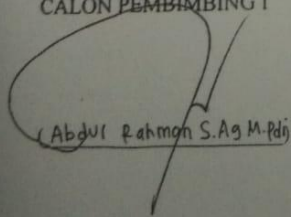 CALON PEMBIMBING I
(Abdul Rahman S.Ag M.Pdi)